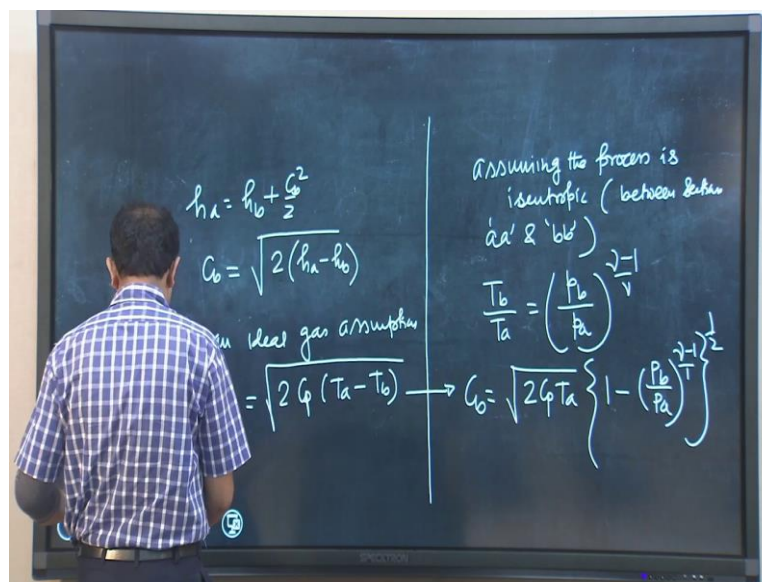 ha = hb + Cb²/2
Cb = √(2(ha − hb))
ideal gas assumption
= √(2 Cp (Ta − Tb)) →
assuming the process is
isentropic ( between
'aa' & 'bb' )
Tb/Ta = (pb/pa)^((γ−1)/γ)
Cb = √(2CpTa) {1 − (pb/pa)^((γ−1)/γ)}^(1/2)